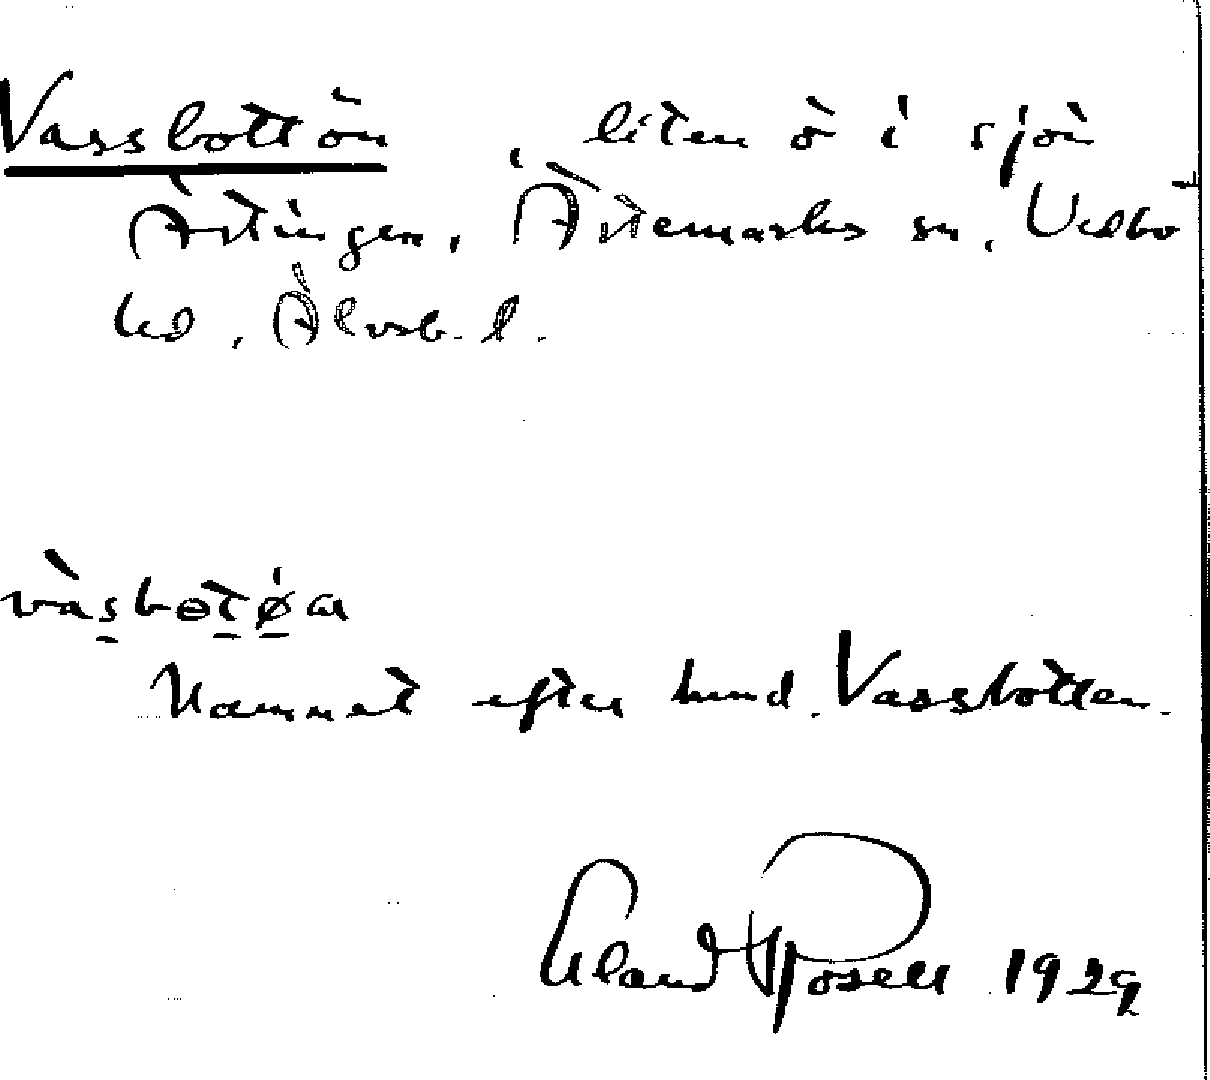 Vassbottön, liten ö i sjön
Ärtingen, Ärtemarks sn, Vedbo
hd, Älvsb. l.
vàsbɵtǿa
Namnet efter hmd. Vassbotten.
Erland Rosell 1929